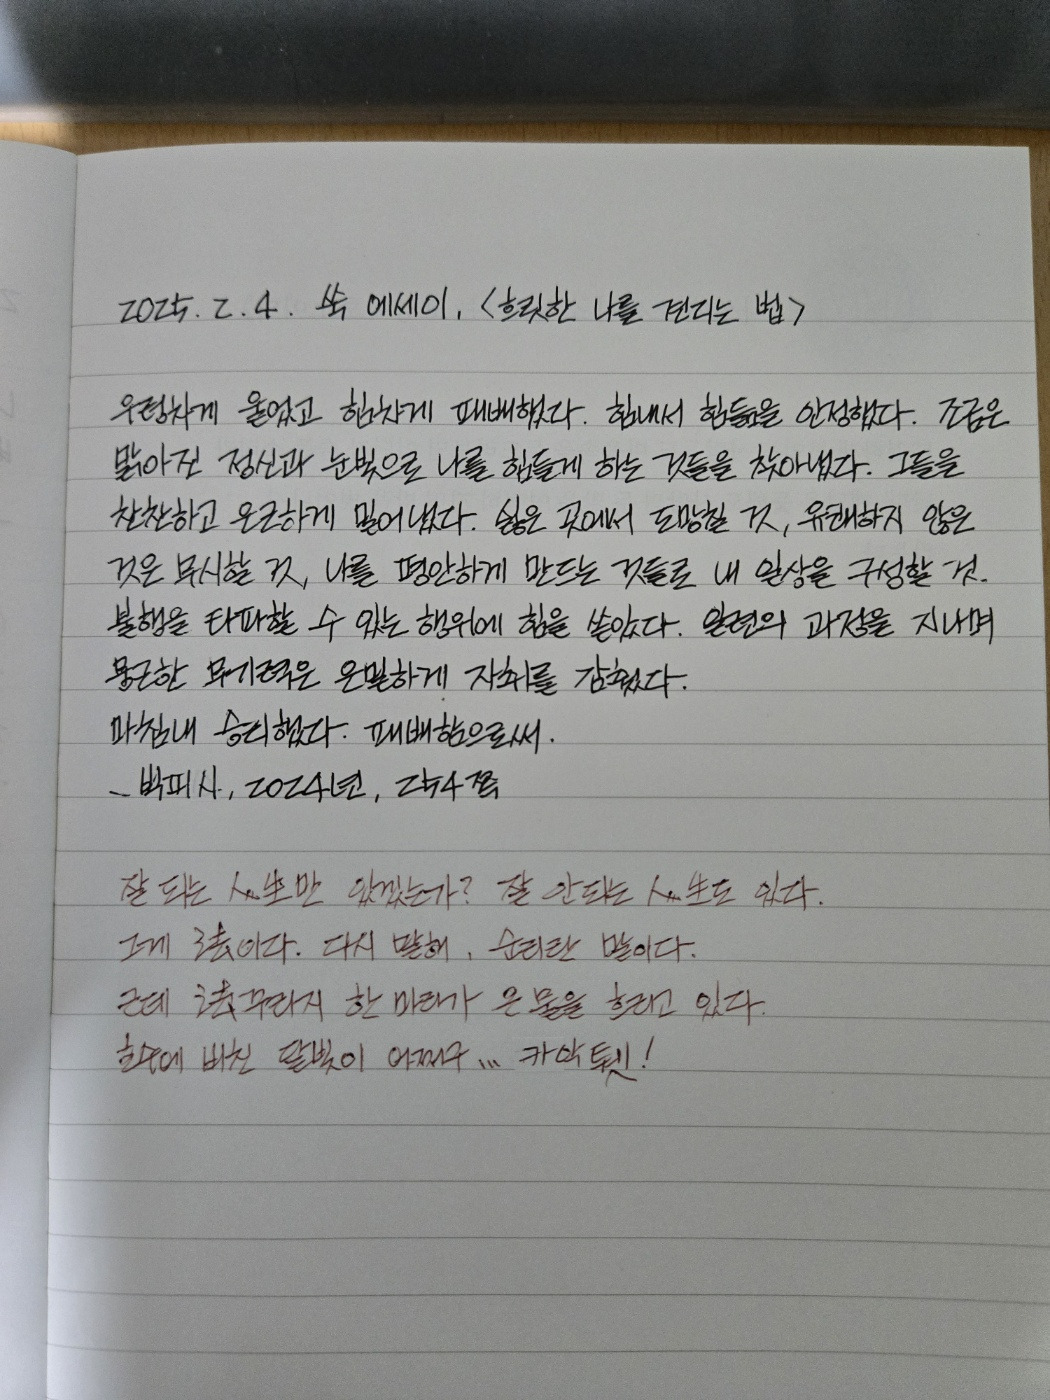 2025. 2. 4. 쑥 에세이, <흐릿한 나를 견디는 법>
우렁차게 울었고 힘차게 패배했다. 힘내서 힘듦을 인정했다. 조금은
맑아진 정신과 눈빛으로 나를 힘들게 하는 것들을 찾아냈다. 그들을
찬찬하고 온근하게 밀어냈다. 싫은 곳에서 도망칠 것, 유쾌하지 않은
것은 무시할 것, 나를 평안하게 만드는 것들로 내 일상을 구성할 것.
불행을 타파할 수 있는 행위에 힘을 쏟았다. 일련의 과정을 지나며
뭉근한 무기력은 은밀하게 자취를 감췄다.
마침내 승리했다. 패배함으로써.
- 박피사, 2024년, 254쪽
잘 되는 人生만 있겠는가? 잘 안되는 人生도 있다.
그게 法이다. 다시 말해, 순리란 말이다.
근데 꾸라지 한 마리가 온 물을 흐리고 있다.
에 비친 달빛이 어쩌구... 카악 퉷!